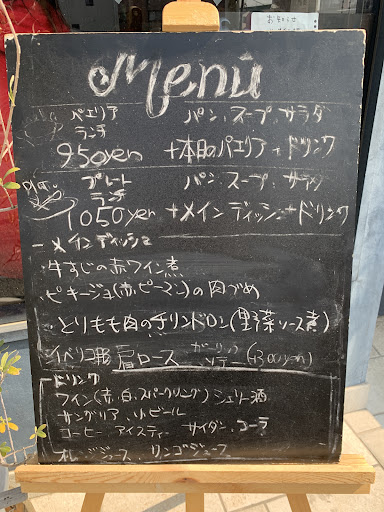 お知らせ
Menu
パエリア
ランチ
パン、スープ、サラダ
950yen
+本日のパエリア+ドリンク
プレート
ランチ
パン、スープ、サラダ
1050yen
+メインディッシュ+ドリンク
ーメインディッシュ
・牛すじの赤ワイン煮
・ピキージョ(赤ピーマン)の肉づめ
・とりもも肉のチリンドロン(野菜ソース煮)
イベリコ豚 肩ロース ガーリックソテー(+300yen)
ードリンク
ワイン(赤、白、スパークリング)シェリー酒
サングリア、小ビール
コーヒー アイスティー サイダー、コーラ
オレンジジュース、リンゴジュース